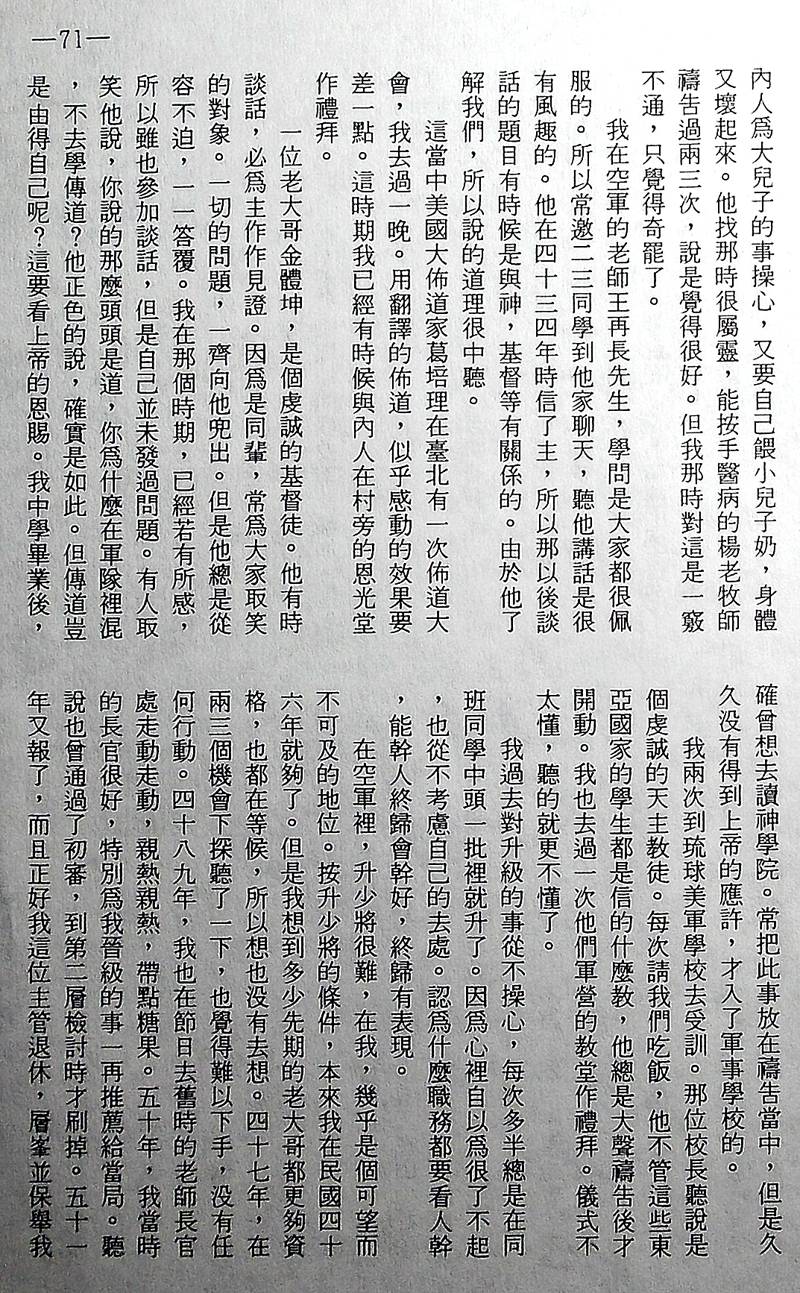 —71—
內人爲大兒子的事操心，又要自己餵小兒子奶，身體
又壞起來。他找那時很屬靈，能按手醫病的楊老牧師
禱告過兩三次，說是覺得很好。但我那時對這是一竅
不通，只覺得奇罷了。
我在空軍的老師王再長先生，學問是大家都很佩
服的。所以常邀二三同學到他家聊天，聽他講話是很
有風趣的。他在四十三四年時信了主，所以那以後談
話的題目有時候是與神，基督等有關係的。由於他了
解我們，所以說的道理很中聽。
這當中美國大佈道家葛培理在臺北有一次佈道大
會，我去過一晚。用翻譯的佈道，似乎感動的效果要
差一點。這時期我已經有時候與內人在村旁的恩光堂
作禮拜。
一位老大哥金體坤，是個虔誠的基督徒。他有時
談話，必爲主作作見證。因爲是同輩，常爲大家取笑
的對象。一切的問題，一齊向他兜出。但是他總是從
容不迫，一一答覆。我在那個時期，已經若有所感，
所以雖也參加談話，但是自己並未發過問題。有人取
笑他說，你說的那麼頭頭是道，你爲什麼在軍隊裡混
，不去學傳道？他正色的說，確實是如此。但傳道豈
是由得自己呢？這要看上帝的恩賜。我中學畢業後，
確曾想去讀神學院。常把此事放在禱告當中，但是久
久没有得到上帝的應許，才入了軍事學校的。
我兩次到琉球美軍學校去受訓。那位校長聽說是
個虔誠的天主教徒。每次請我們吃飯，他不管這些東
亞國家的學生都是信的什麼教，他總是大聲禱告後才
開動。我也去過一次他們軍營的教堂作禮拜。儀式不
太懂，聽的就更不懂了。
我過去對升級的事從不操心，每次多半總是在同
班同學中頭一批裡就升了。因爲心裡自以爲很了不起
，也從不考慮自己的去處。認爲什麼職務都要看人幹
，能幹人終歸會幹好，終歸有表現。
在空軍裡，升少將很難，在我，幾乎是個可望而
不可及的地位。按升少將的條件，本來我在民國四十
六年就夠了。但是我想到多少先期的老大哥都更夠資
格，也都在等候，所以想也没有去想。四十七年，在
兩三個機會下探聽了一下，也覺得難以下手，没有任
何行動。四十八九年，我也在節日去舊時的老師長官
處走動走動，親熱親熱，帶點糖果。五十年，我當時
的長官很好，特別爲我晉級的事一再推薦給當局。聽
說也曾通過了初審，到第二層檢討時才刷掉。五十一
年又報了，而且正好我這位主管退休，層峯並保舉我